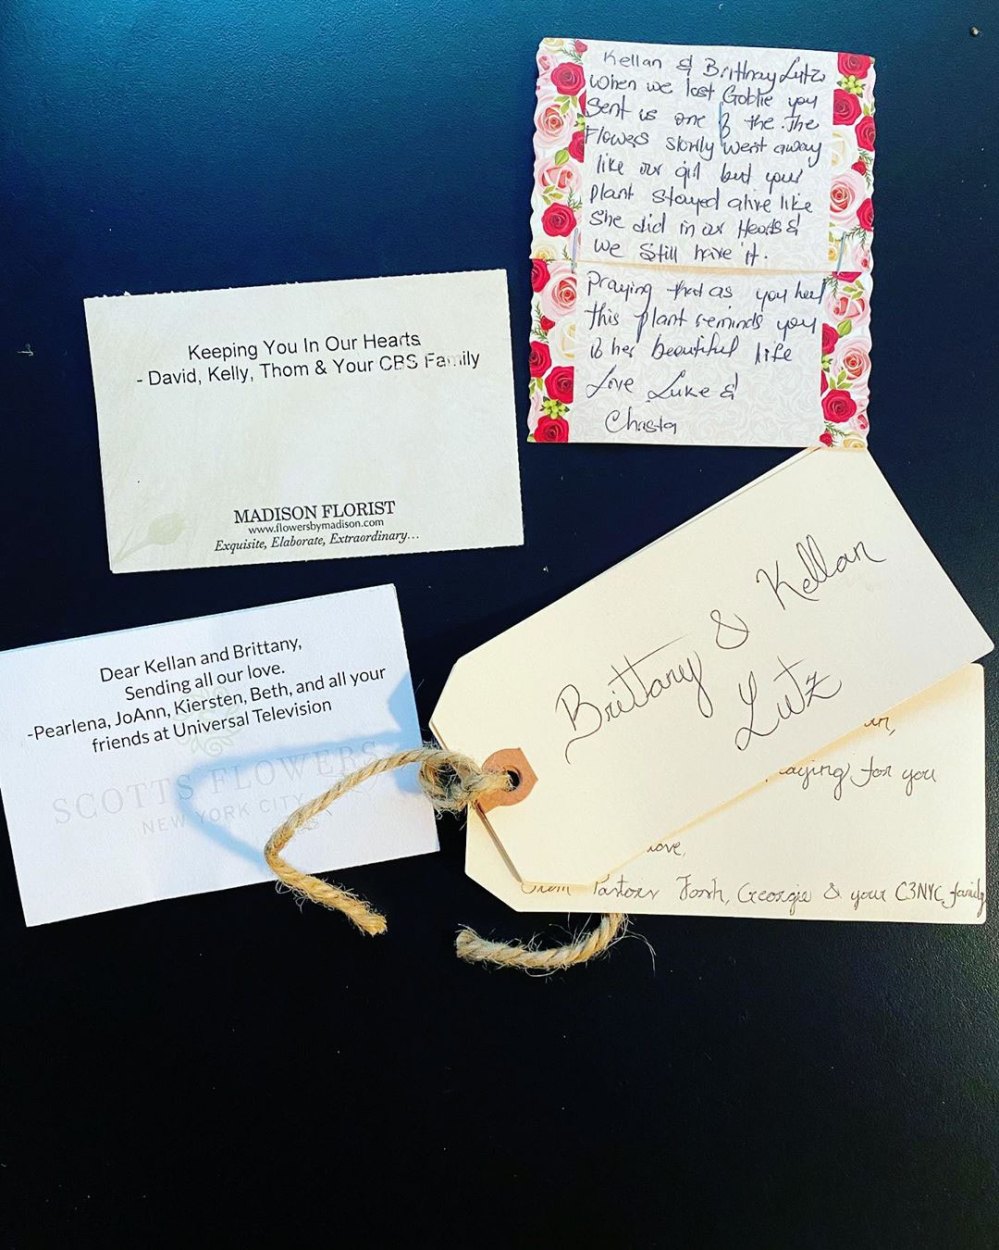 Kellan & Brittnay Lutz
When we lost Goblie you
Sent us one of the. The
Flowers slowly went away
like our girl but your
plant stayed alive like
She did in our Hearts &
we still have it.
Praying that as you heal
this plant reminds you
of her beautiful life
Love Luke &
Chasta
Keeping You In Our Hearts
- David, Kelly, Thom & Your CBS Family
MADISON FLORIST
www.flowersbymadison.com
Exquisite, Elaborate, Extraordinary...
Brittany & Kellan
Lutz
Dear Kellan and Brittany,
Sending all our love.
-Pearlena, JoAnn, Kiersten, Beth, and all your
friends at Universal Television
SCOTTS FLOWERS
NEW YORK CITY
aying for you
ove,
Pastors Josh, Georgie & your C3NYC family